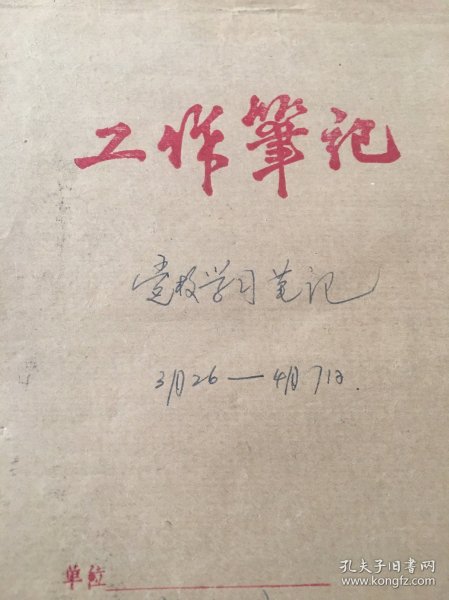 工作筆记
党校学习笔记
3月26—4月7日.
单位
孔夫子旧书网
www.kongfz.com